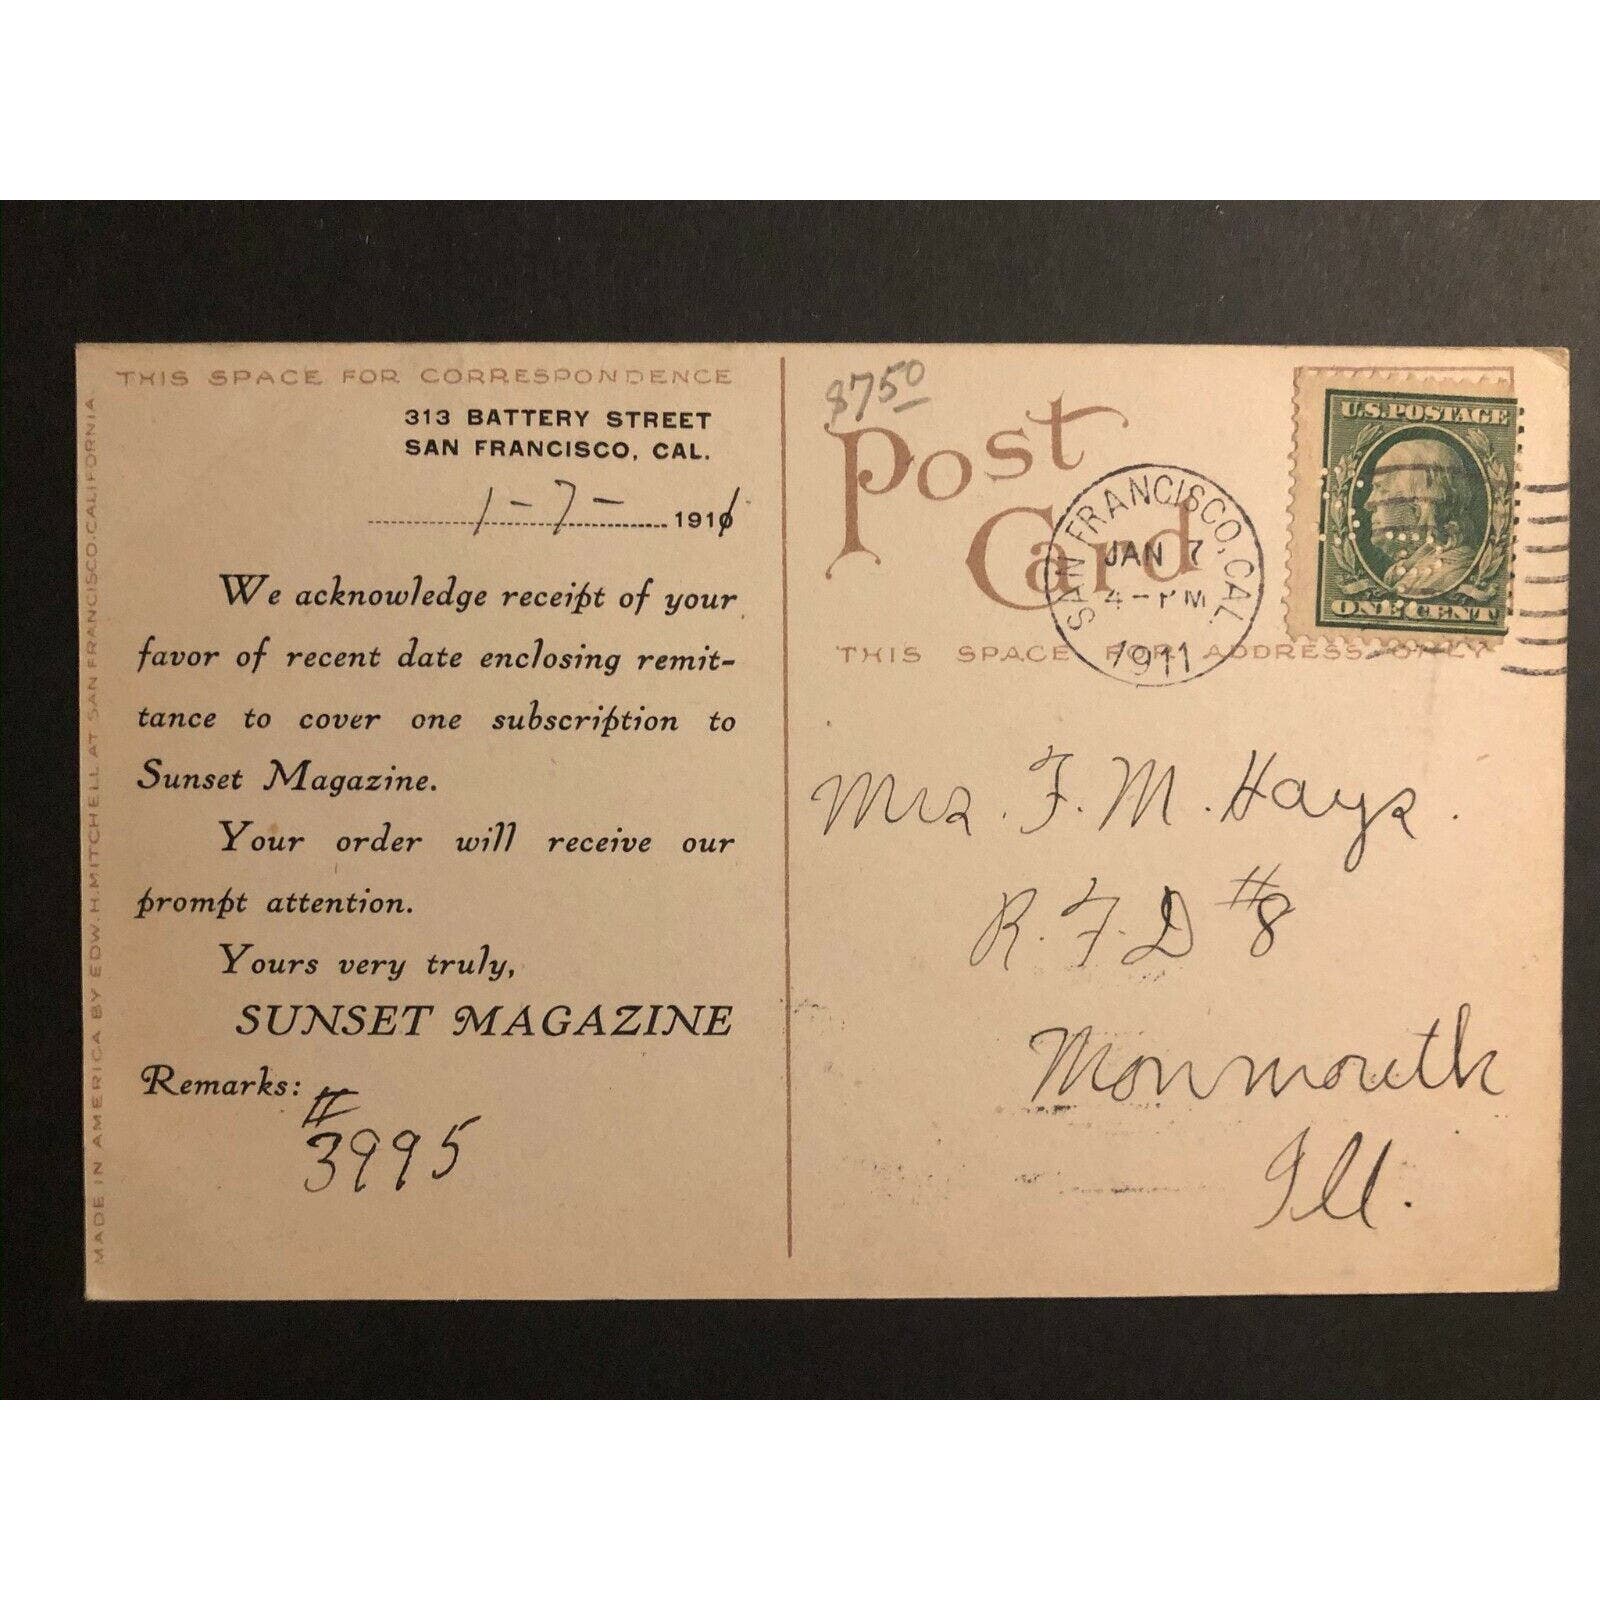 THIS SPACE FOR CORRESPONDENCE
313 BATTERY STREET
SAN FRANCISCO, CAL.
1-7- 1911
We acknowledge receipt of your
favor of recent date enclosing remit-
tance to cover one subscription to
Sunset Magazine.
Your order will receive our
prompt attention.
Yours very truly,
SUNSET MAGAZINE
Remarks:
#
3995
MADE IN AMERICA BY EDW. H. MITCHELL AT SAN FRANCISCO. CALIFORNIA.
$7.50
Post
Card
THIS SPACE FOR ADDRESS ONLY
SAN FRANCISCO, CAL.
JAN 7
4-PM
1911
U.S. POSTAGE
ONE CENT
Mrs. F. M. Hays.
R. F. D #8
Monmouth
Ill.